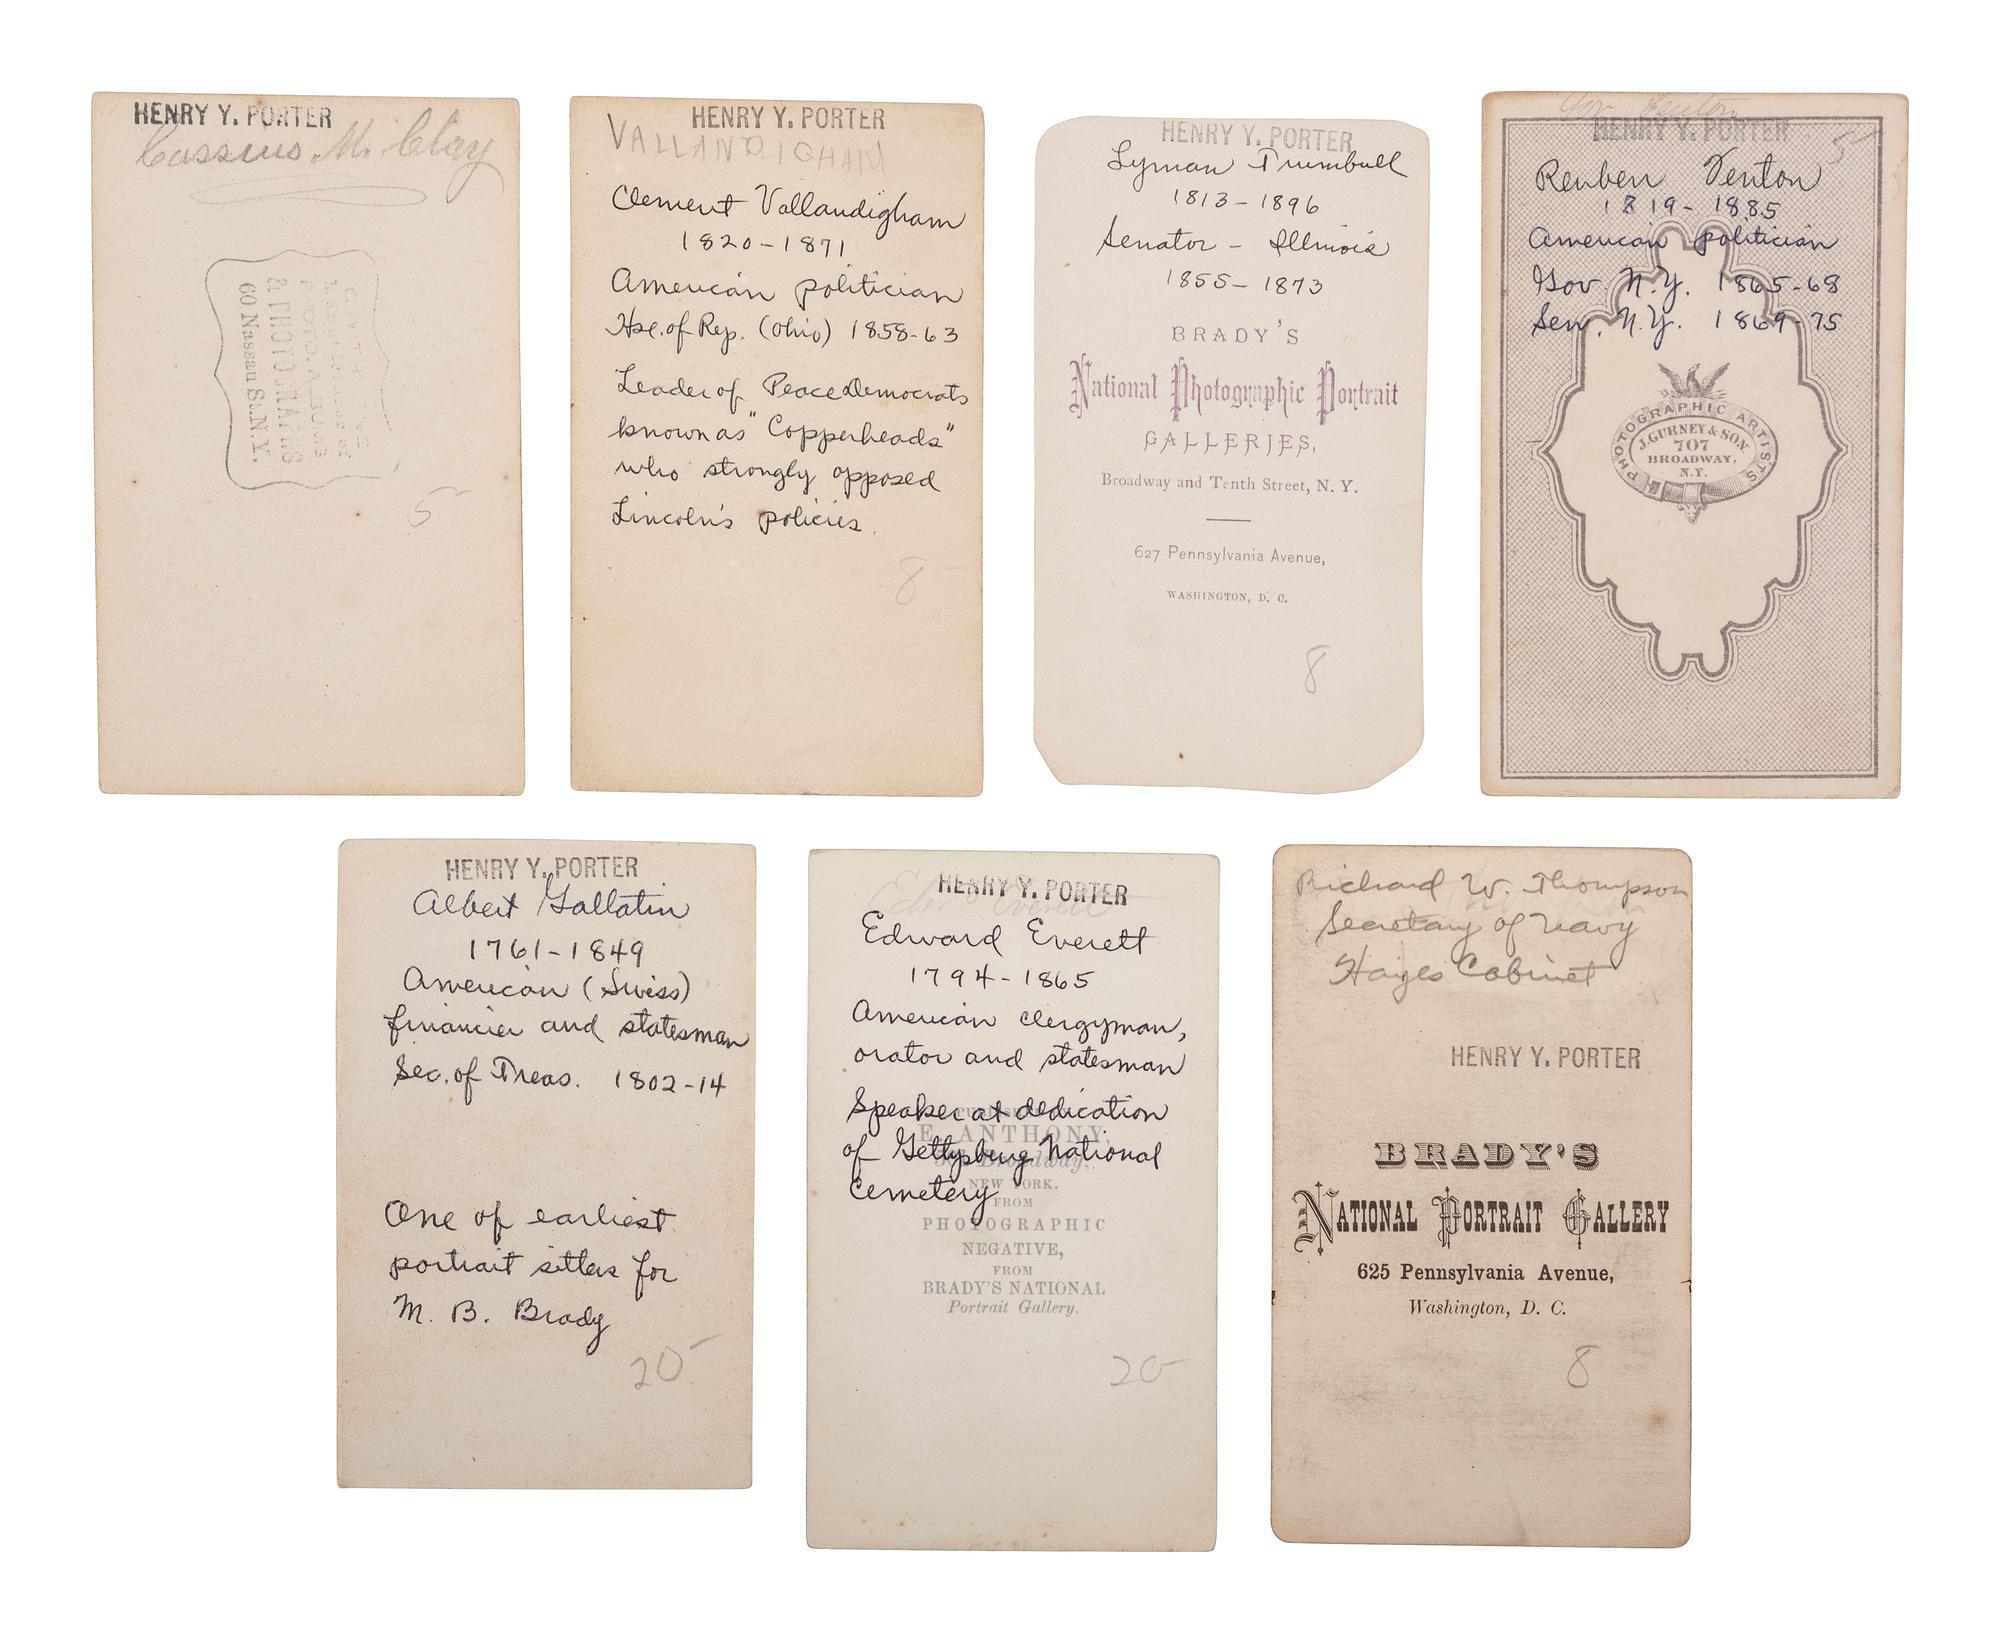 HENRY Y. PORTER
Cassius M. Clay
& PHOTOGRAPHS
60 Nassau St. N.Y.
5
HENRY Y. PORTER
VALLANDIGHAM
Clement Vallandigham
1820-1871
American politician
Hse. of Rep. (Ohio) 1858-63
Leader of Peace Democrats
known as "Copperheads"
who strongly opposed
Lincoln's policies.
8
HENRY Y. PORTER
Lyman Trumbull
1813-1896
Senator - Illinois
1855-1873
BRADY'S
National Photographic Portrait
GALLERIES,
Broadway and Tenth Street, N. Y.
627 Pennsylvania Avenue,
WASHINGTON, D. C.
8
Gov Fenton
HENRY Y. PORTER
5
Reuben Fenton
1819-1885
American politician
Gov. N.Y. 1865-68
Sen. N.Y. 1869-75
PHOTOGRAPHIC ARTISTS
J. GURNEY & SON
707
BROADWAY,
N.Y.
HENRY Y. PORTER
Albert Gallatin
1761-1849
American (Swiss)
financier and statesman
Sec. of Treas. 1802-14
One of earliest
portrait sitters for
M. B. Brady
20
HENRY Y. PORTER
Edw Everett
Edward Everett
1794-1865
American clergyman,
orator and statesman
Speaker at dedication
of Gettysburg National
Cemetery
E. ANTHONY,
Broadway,
NEW YORK.
FROM
PHOTOGRAPHIC
NEGATIVE,
FROM
BRADY'S NATIONAL
Portrait Gallery.
20
Richard W. Thompson
Secretary of Navy
Hayes Cabinet
HENRY Y. PORTER
BRADY'S
NATIONAL PORTRAIT GALLERY
625 Pennsylvania Avenue,
Washington, D. C.
8